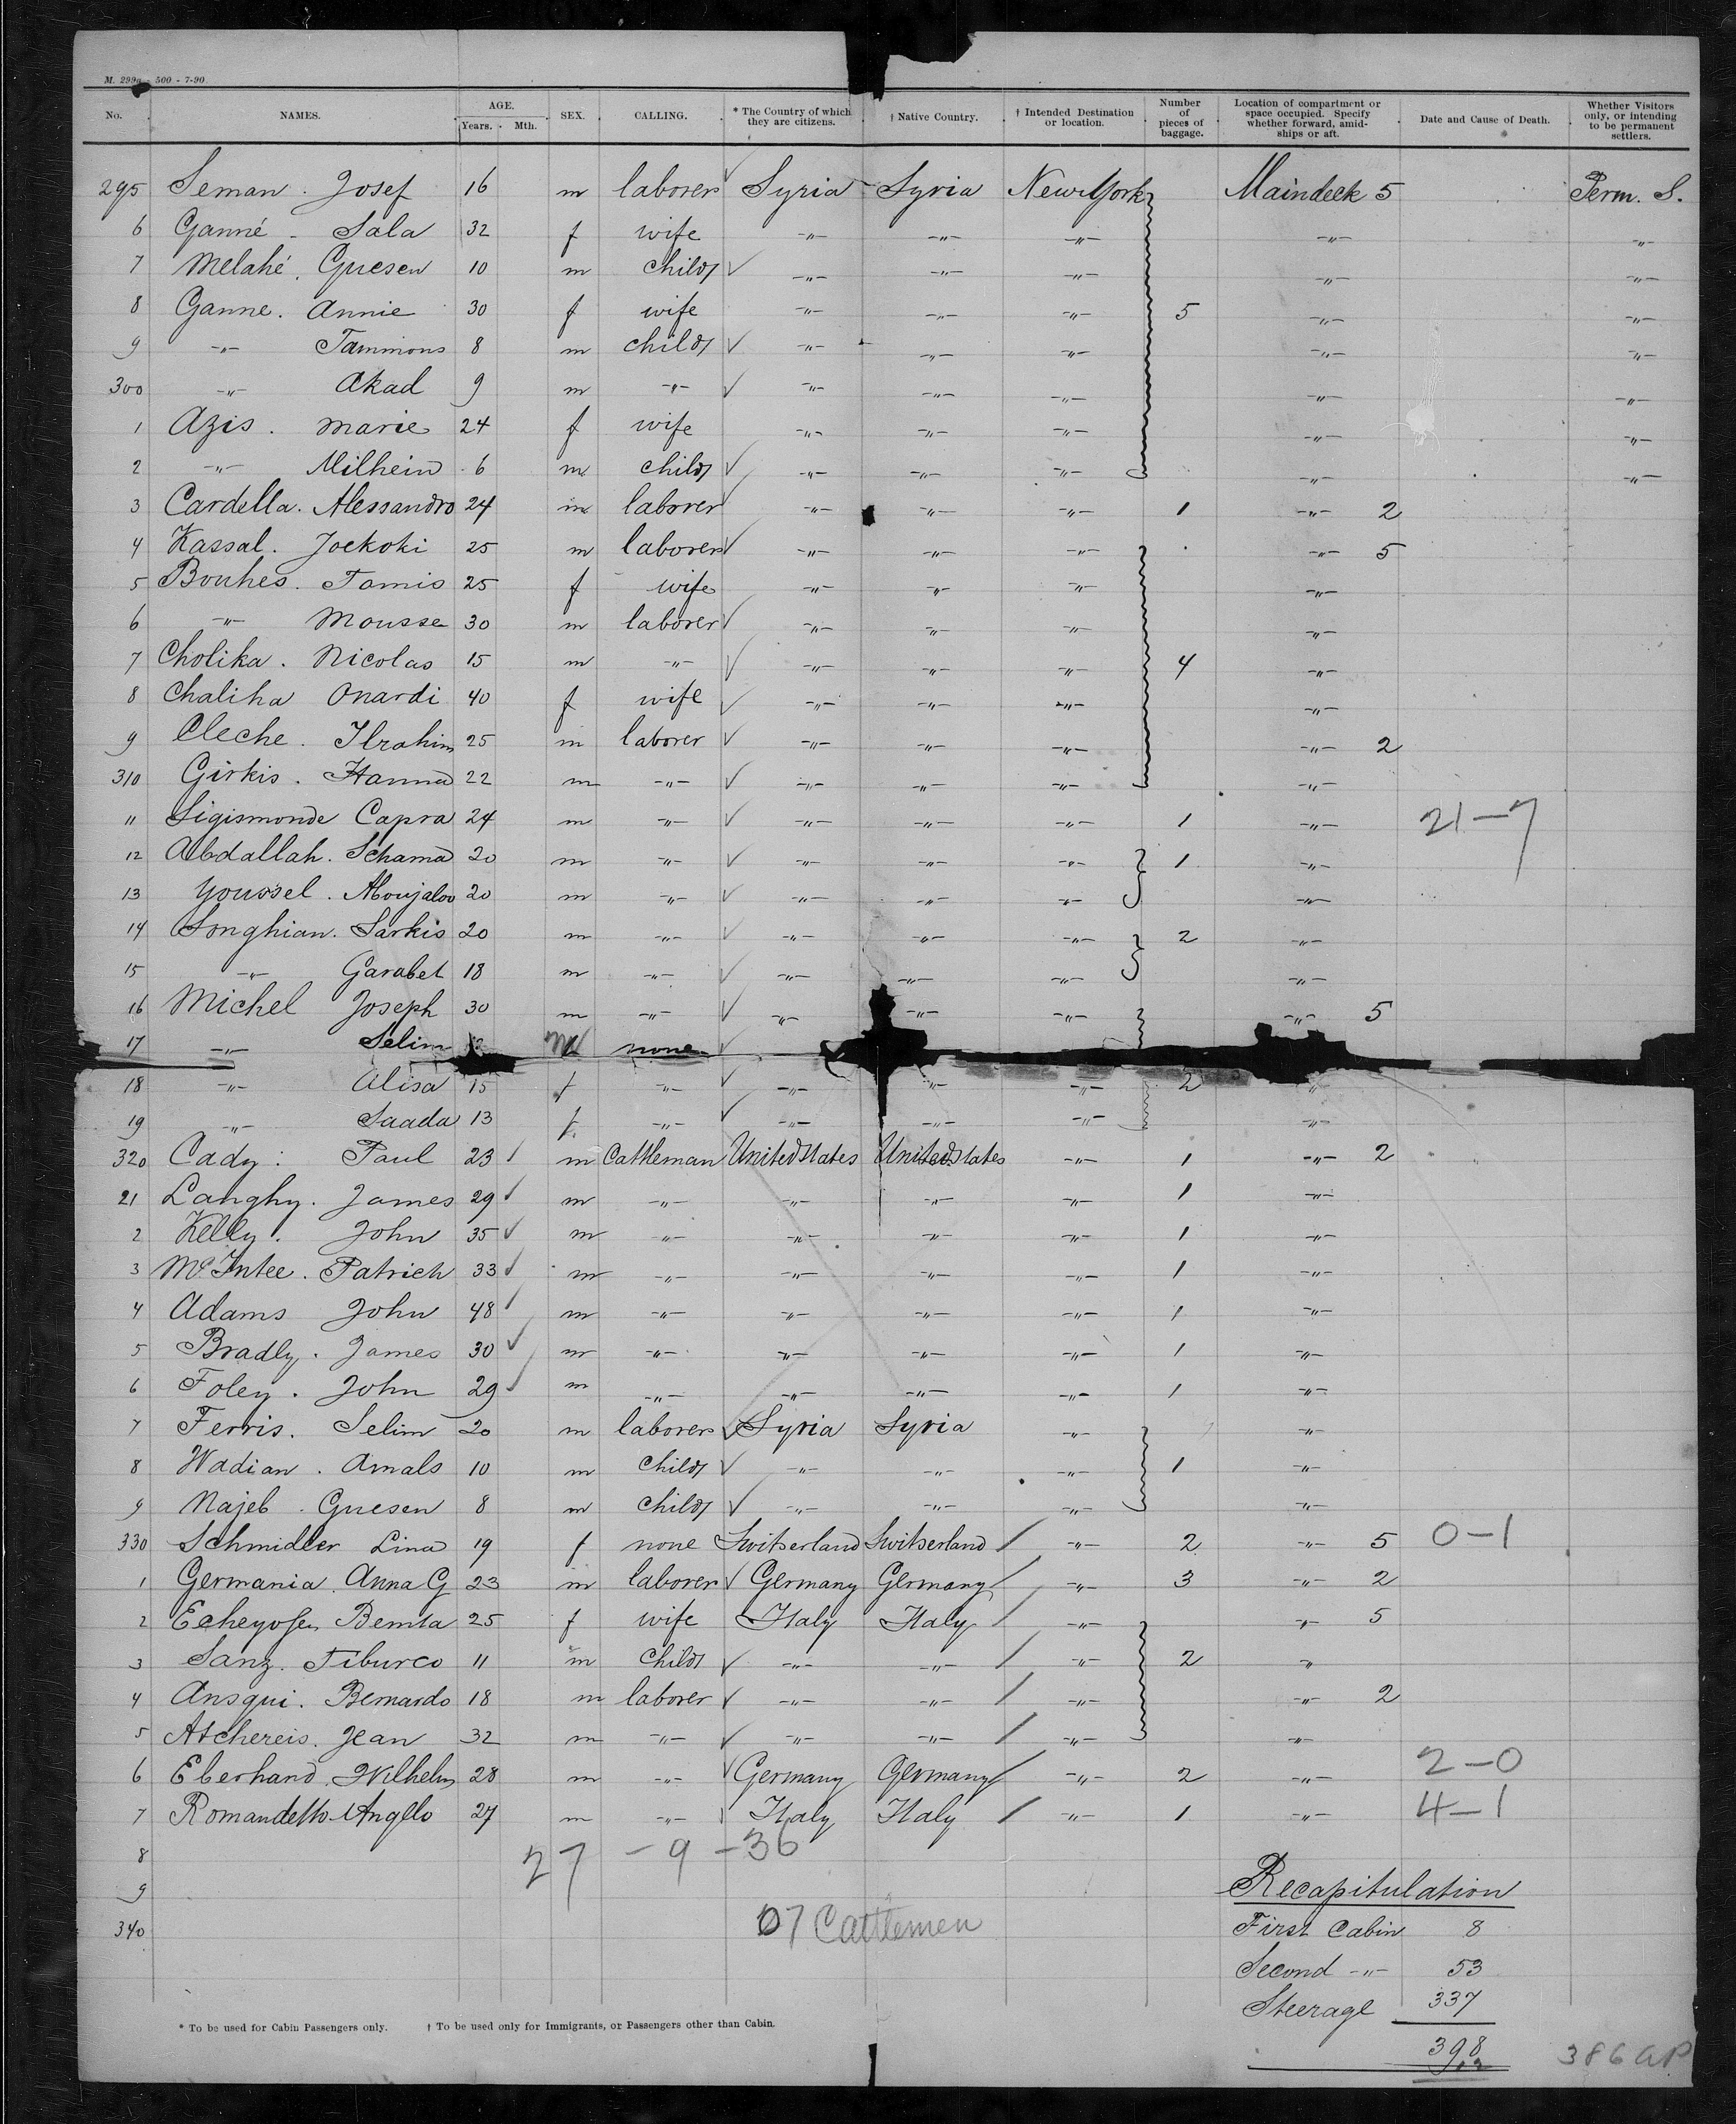 M. 299a - 500 - 7-90.
No. NAMES. AGE. Years. Mth. SEX. CALLING. * The Country of which they are citizens. † Native Country. † Intended Destination or location. Number of pieces of baggage. Location of compartment or space occupied. Specify whether forward, amidships or aft. Date and Cause of Death. Whether Visitors only, or intending to be permanent settlers.
295 Seman . Josef 16 m laborer Syria Syria New York Maindeck 5 Perm. S.
6 Ganné - Sala 32 f wife -"- -"- -"- -"- -"-
7 Melahé . Guesen 10 m child -"- -"- -"- -"- -"-
8 Ganne . Annie 30 f wife -"- -"- -"- 5 -"- -"-
9 -"- Tammons 8 m child -"- -"- -"- -"- -"-
300 -"- Akad 9 m -"- -"- -"- -"- -"- -"-
1 Azis . Marie 24 f wife -"- -"- -"- -"- -"-
2 -"- Milhein 6 m child -"- -"- -"- -"- -"-
3 Cardella . Alessandro 24 m laborer -"- -"- -"- 1 -"- 2
4 Kassal . Joekoki 25 m laborer -"- -"- -"- -"- 5
5 Bouhes . Tamis 25 f wife -"- -"- -"- -"-
6 -"- Mousse 30 m laborer -"- -"- -"- -"-
7 Cholika . Nicolas 15 m -"- -"- -"- -"- 4 -"-
8 Chaliha Onardi 40 f wife -"- -"- -"- -"-
9 Cleche . Ibrahim 25 m laborer -"- -"- -"- -"- 2
310 Girkis . Hanna 22 m -"- -"- -"- -"- -"-
11 Sigismonde Capra 24 m -"- -"- -"- -"- 1 -"- 21-7
12 Abdallah . Schama 20 m -"- -"- -"- -"- 1 -"-
13 Youssel . Aboujalov 20 m -"- -"- -"- -"- -"-
14 Songhian . Sarkis 20 m -"- -"- -"- -"- 2 -"-
15 -"- Garabet 18 m -"- -"- -"- -"- -"-
16 Michel Joseph 30 m -"- -"- -"- -"- -"- 5
17 -"- Selim m none
18 -"- Alisa 15 f -"- -"- -"- -"- 2 -"-
19 -"- Saada 13 f -"- -"- -"- -"- -"-
320 Cady : Paul 23 m Cattleman United States United States -"- 1 -"- 2
21 Langhy . James 29 m -"- -"- -"- -"- 1 -"-
2 Kelly . John 35 m -"- -"- -"- -"- 1 -"-
3 McIntee . Patrich 33 m -"- -"- -"- -"- 1 -"-
4 Adams John 48 m -"- -"- -"- -"- 1 -"-
5 Bradly . James 30 m -"- -"- -"- -"- 1 -"-
6 Foley . John 29 m -"- -"- -"- -"- 1 -"-
7 Ferris . Selim 20 m laborer Syria Syria -"- -"-
8 Wadian . Amals 10 m child -"- -"- -"- 1 -"-
9 Najeb . Guesen 8 m child -"- -"- -"- -"-
330 Schmidler Lina 19 f none Switserland Switserland -"- 2 -"- 5 0-1
1 Germania . Anna G 23 m laborer Germany Germany -"- 3 -"- 2
2 Bemta 25 f wife Italy Italy -"- -"- 5
3 Sanz . Tiburco 11 m child -"- -"- -"- 2 -"-
4 Ansqui . Bernardo 18 m laborer -"- -"- -"- -"- 2
5 Atchereis . Jean 32 m -"- -"- -"- -"- -"-
6 Eberhand . Wilhelm 28 m -"- Germany Germany -"- 2 -"- 2-0
7 Romandetto Angelo 27 m -"- Italy Italy -"- 1 -"- 4-1
8 27 - 9 - 36
9 Recapitulation
340 07 Cattlemen First Cabin 8
Second -"- 53
Steerage 337
398
386 AP
* To be used for Cabin Passengers only. † To be used only for Immigrants, or Passengers other than Cabin.